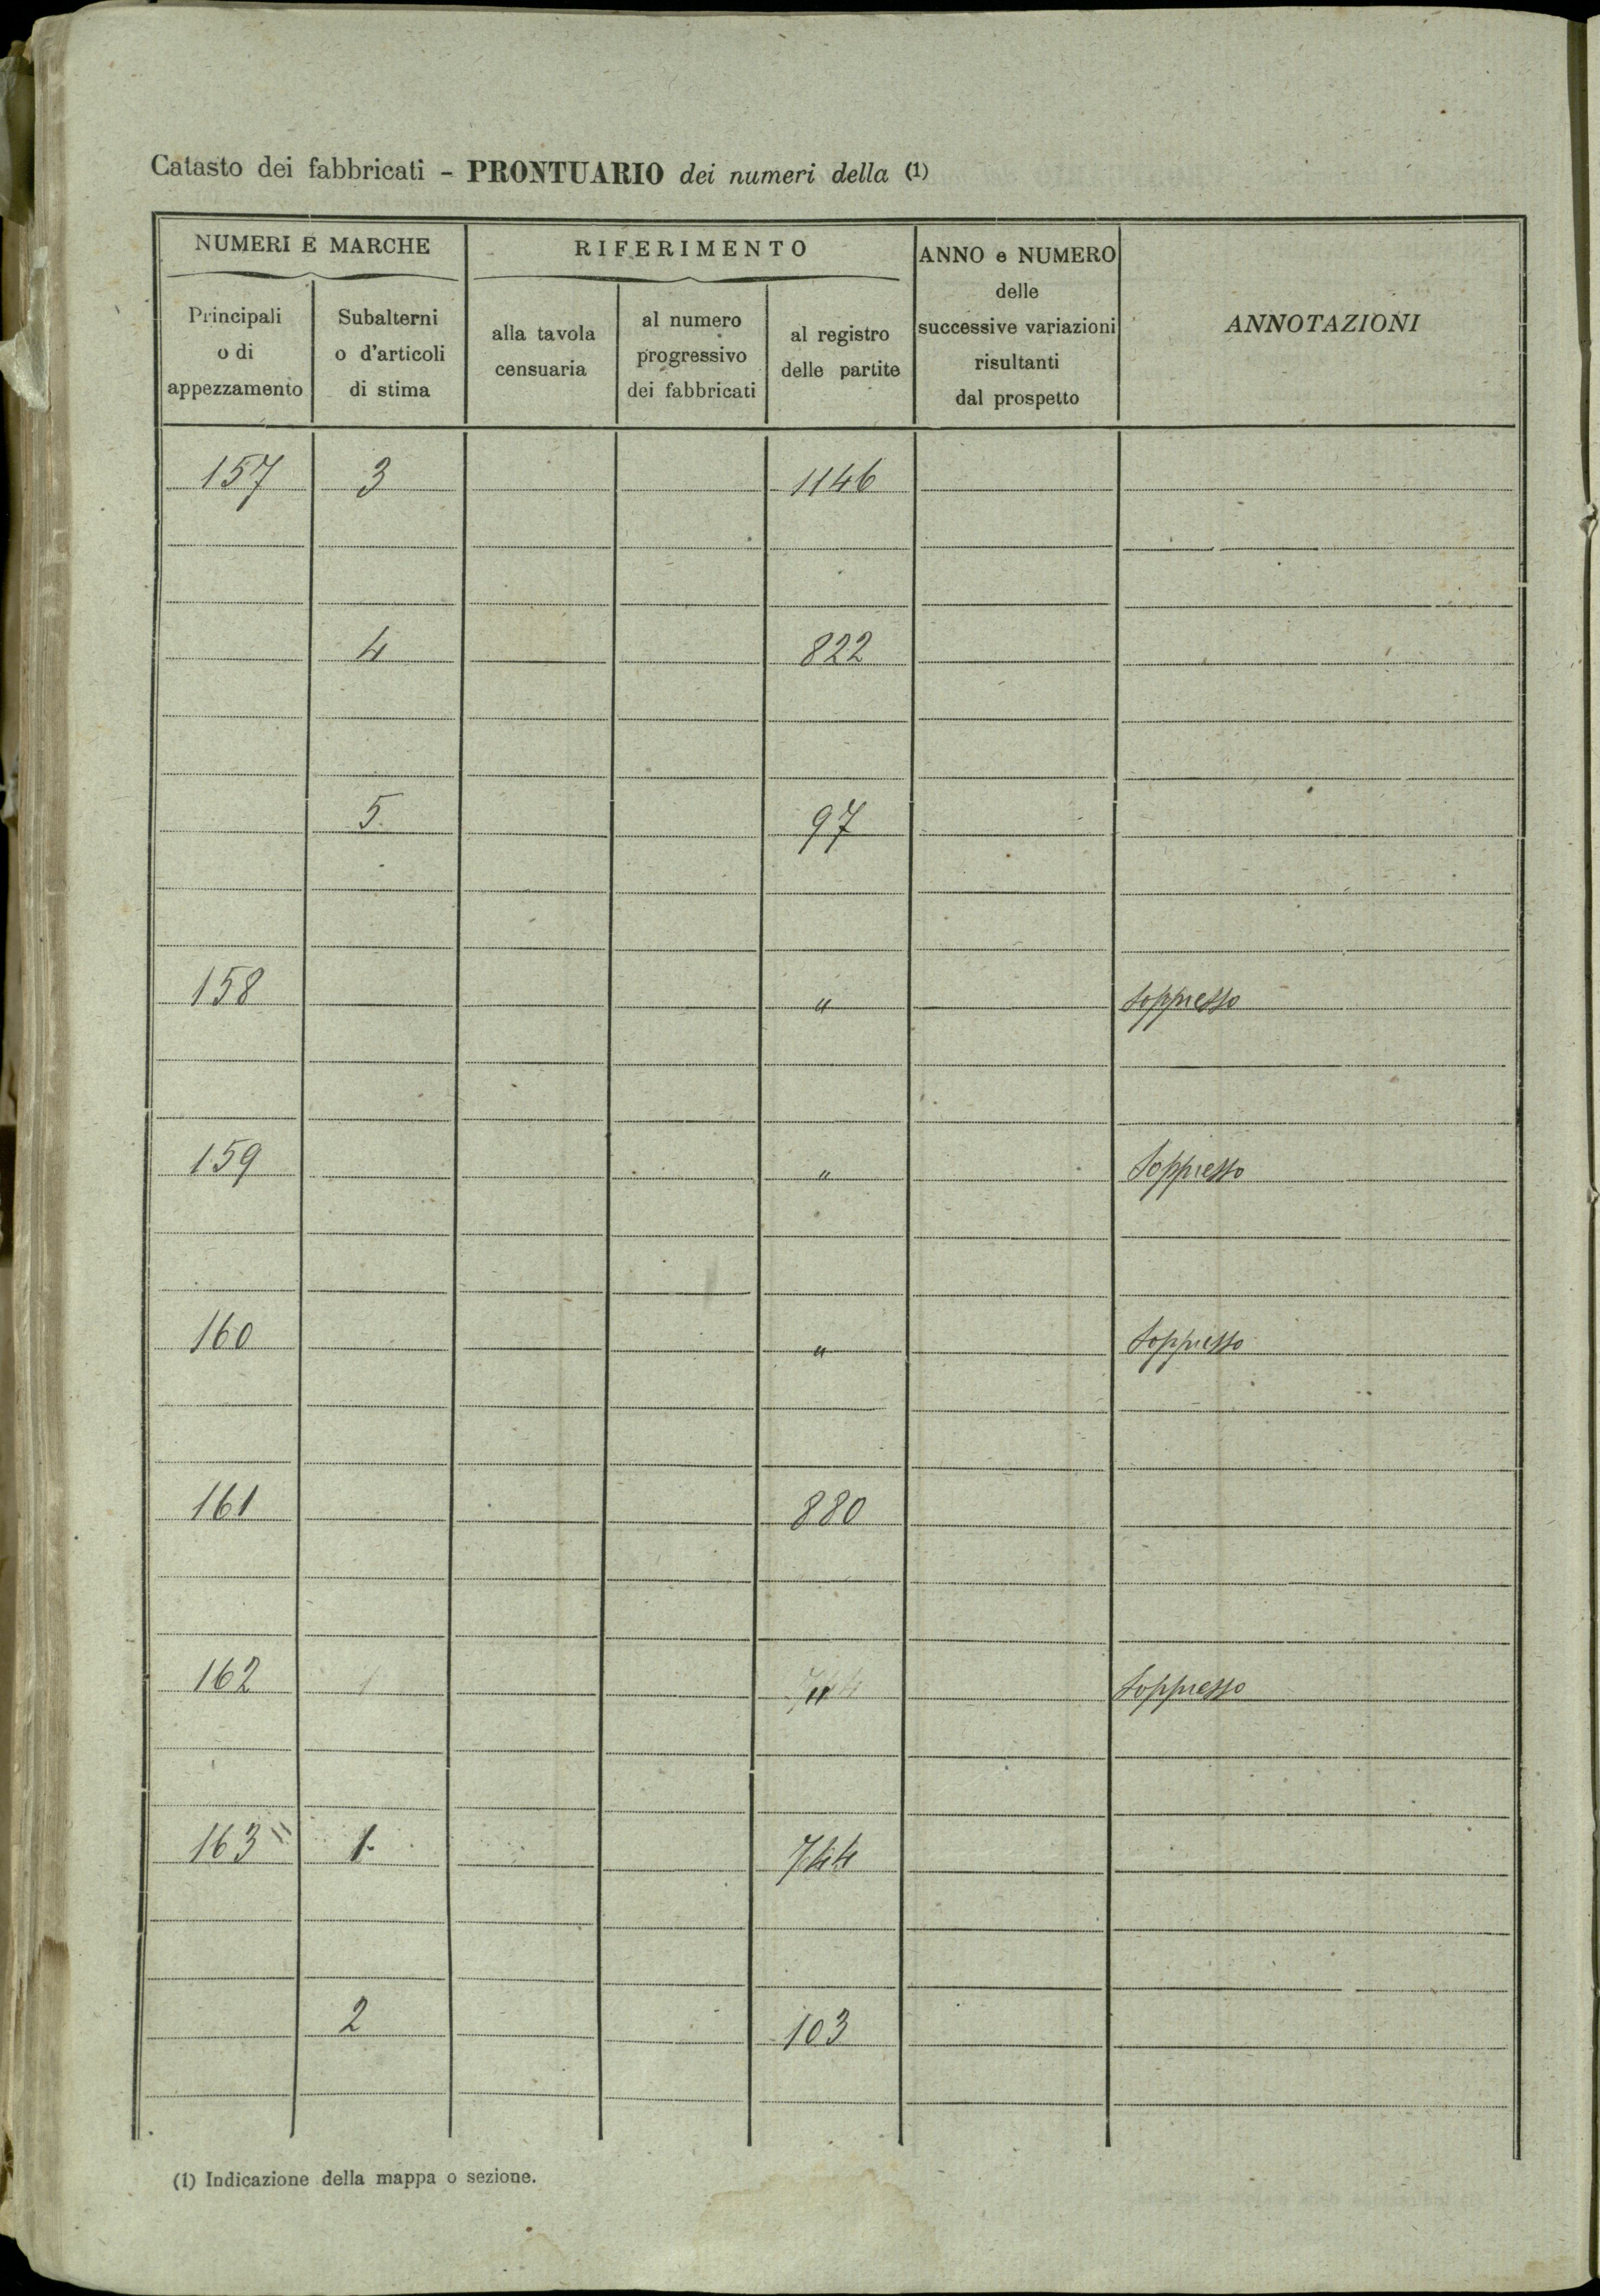 Catasto dei fabbricati - PRONTUARIO dei numeri della (1)
NUMERI E MARCHE
RIFERIMENTO
ANNO e NUMERO
delle
successive variazioni
risultanti
dal prospetto
ANNOTAZIONI
Principali
o di
appezzamento
Subalterni
o d'articoli
di stima
alla tavola
censuaria
al numero
progressivo
dei fabbricati
al registro
delle partite
157 3 1146
4 822
5 97
158 " soppresso
159 " Soppresso
160 " Soppresso
161 880
162 1 " Soppresso
163 1 744
2 103
(1) Indicazione della mappa o sezione.